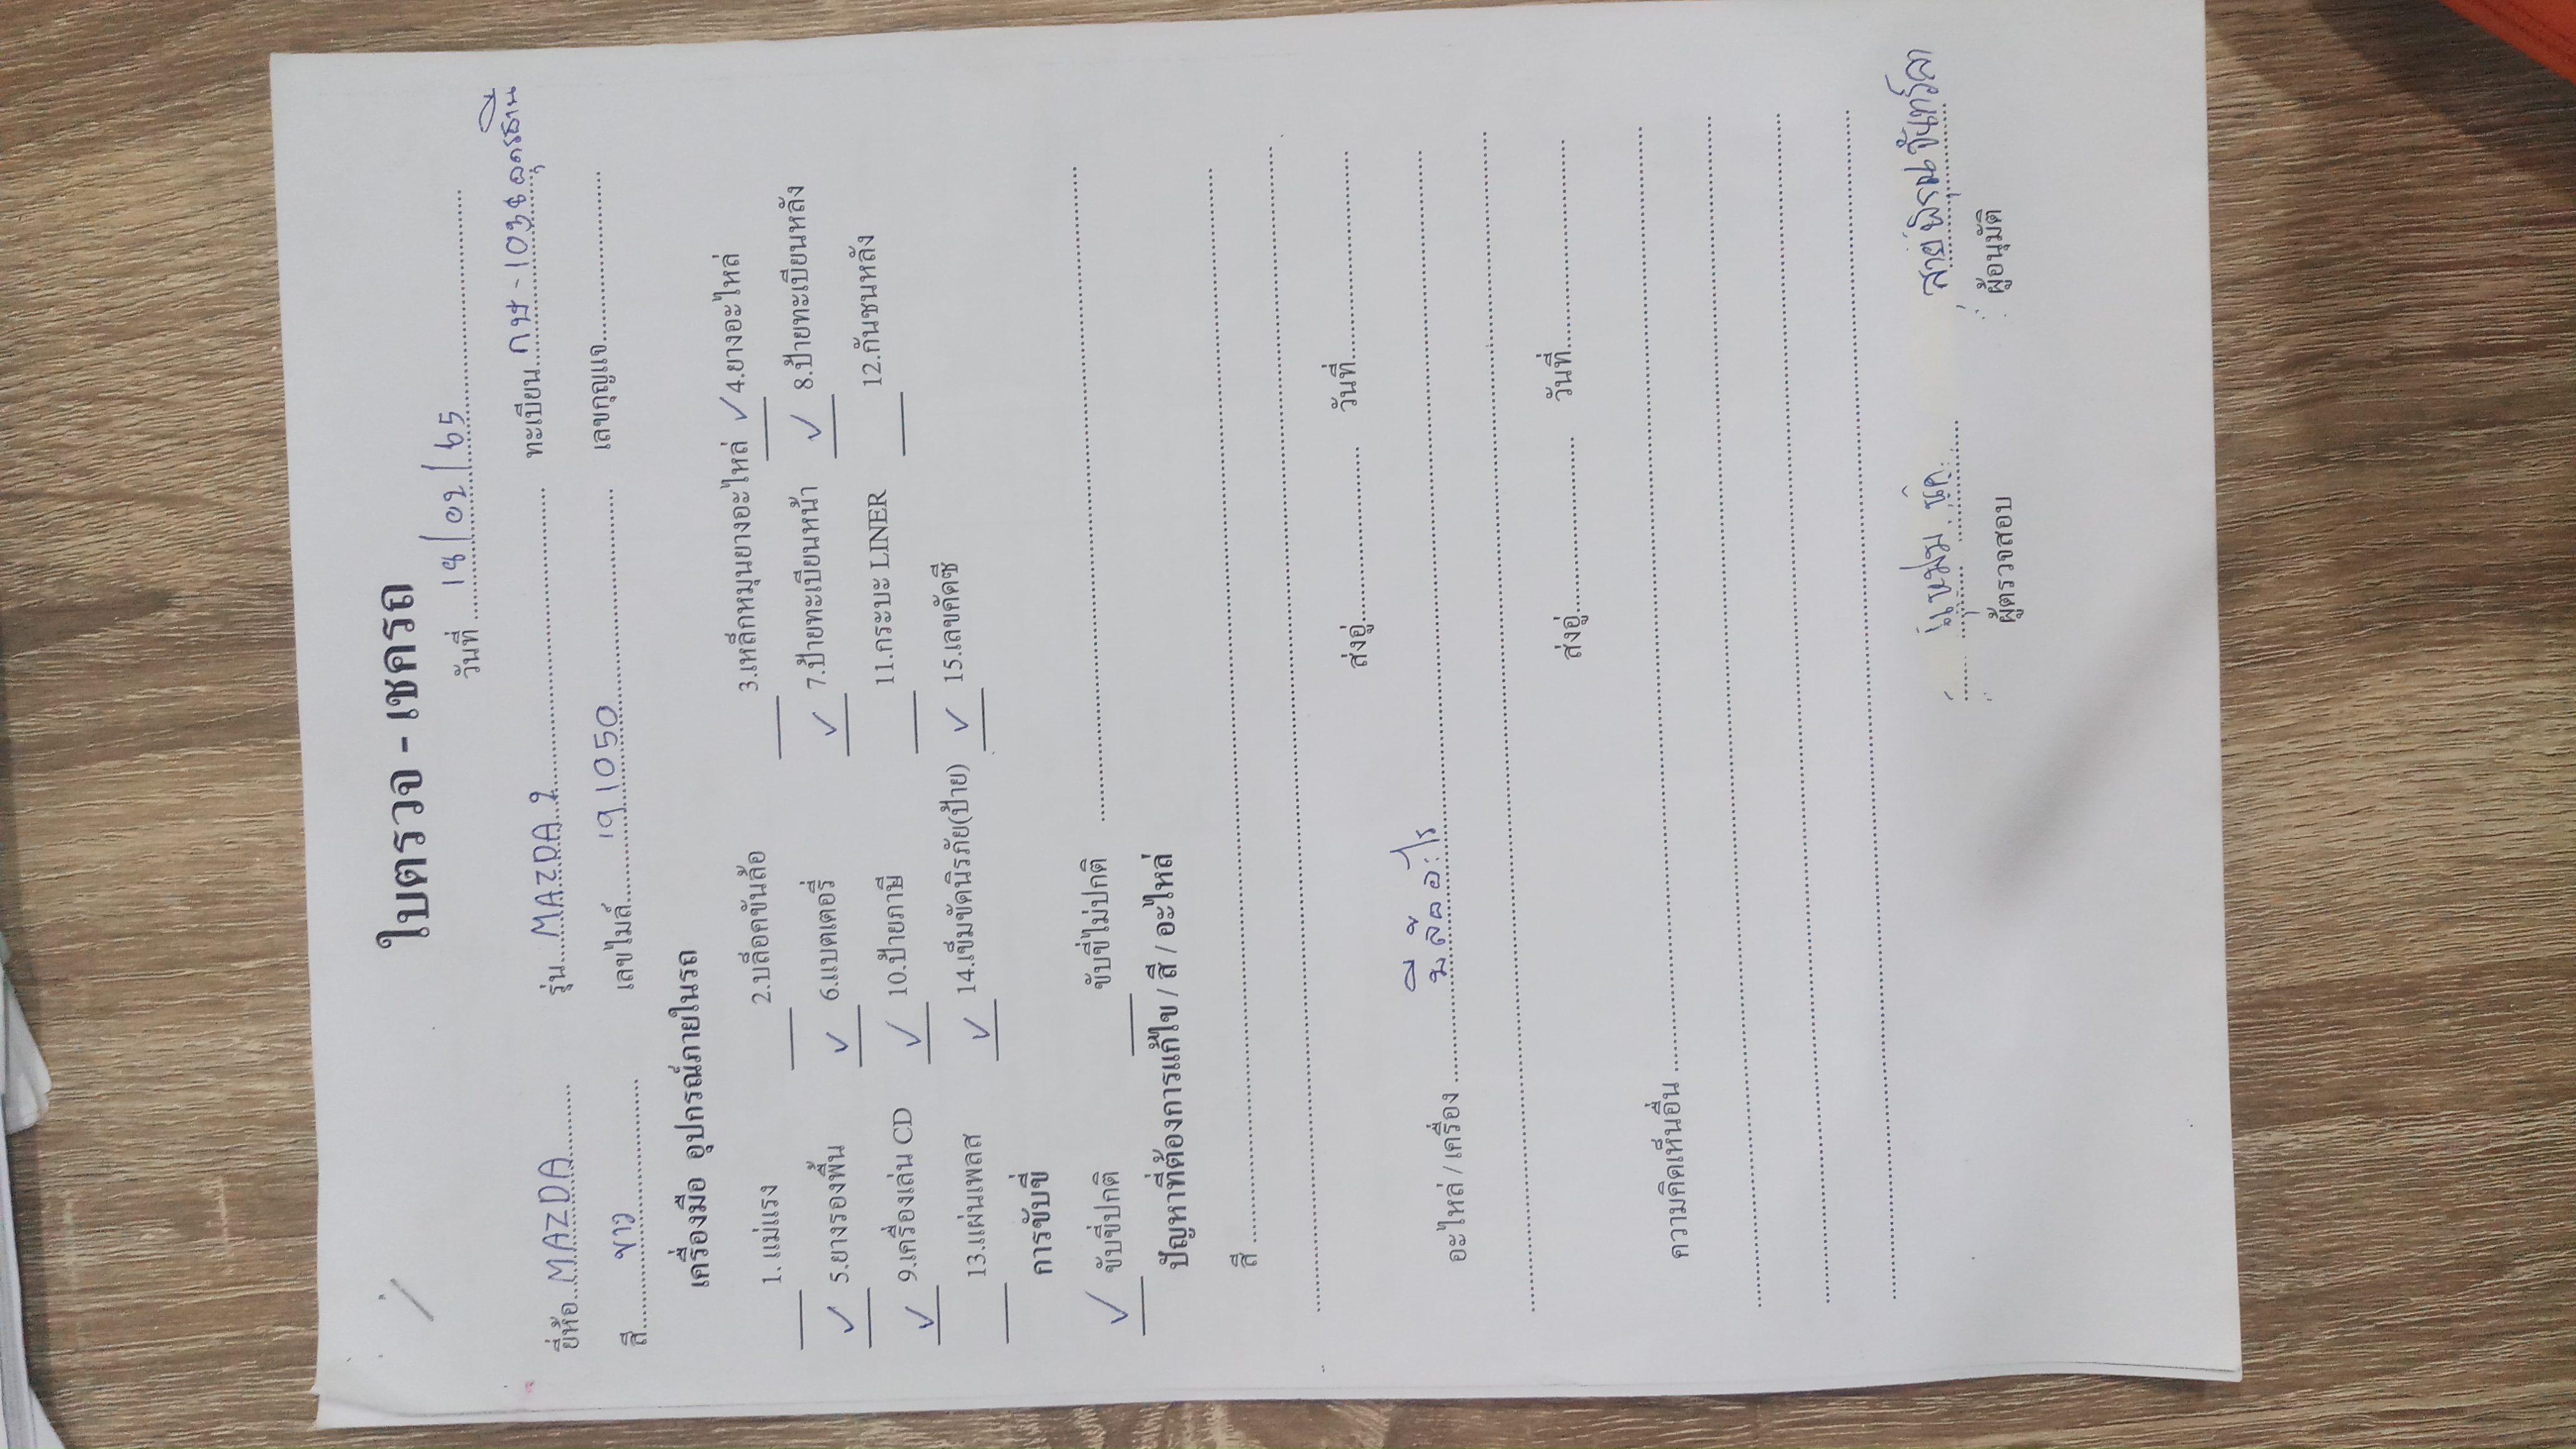 ใบตรวจ - เชครถ
วันที่ 18/02/65
ยี่ห้อ MAZDA รุ่น MAZDA 2 ทะเบียน กษ - 1038 อุดรธานี
สี ขาว เลขไมล์ 191050 เลขกุญแจ
เครื่องมือ อุปกรณ์ภายในรถ
1. แม่แรง 2.บล็อคขันล้อ 3.เหล็กหมุนยางอะไหล่ ✓ 4.ยางอะไหล่
✓ 5.ยางรองพื้น ✓ 6.แบตเตอรี่ ✓ 7.ป้ายทะเบียนหน้า ✓ 8.ป้ายทะเบียนหลัง
✓ 9.เครื่องเล่น CD ✓ 10.ป้ายภาษี 11.กระบะ LINER 12.กันชนหลัง
13.แผ่นเพลส ✓ 14.เข็มขัดนิรภัย(ป้าย) ✓ 15.เลขคัดซี
การขับขี่
✓ ขับขี่ปกติ ขับขี่ไม่ปกติ
ปัญหาที่ต้องการแก้ไข / สี / อะไหล่
สี
ส่งอู่ วันที่
อะไหล่ / เครื่อง มีล้ออะไร
ส่งอู่ วันที่
ความคิดเห็นอื่น
ผู้ตรวจสอบ ผู้อนุมัติ